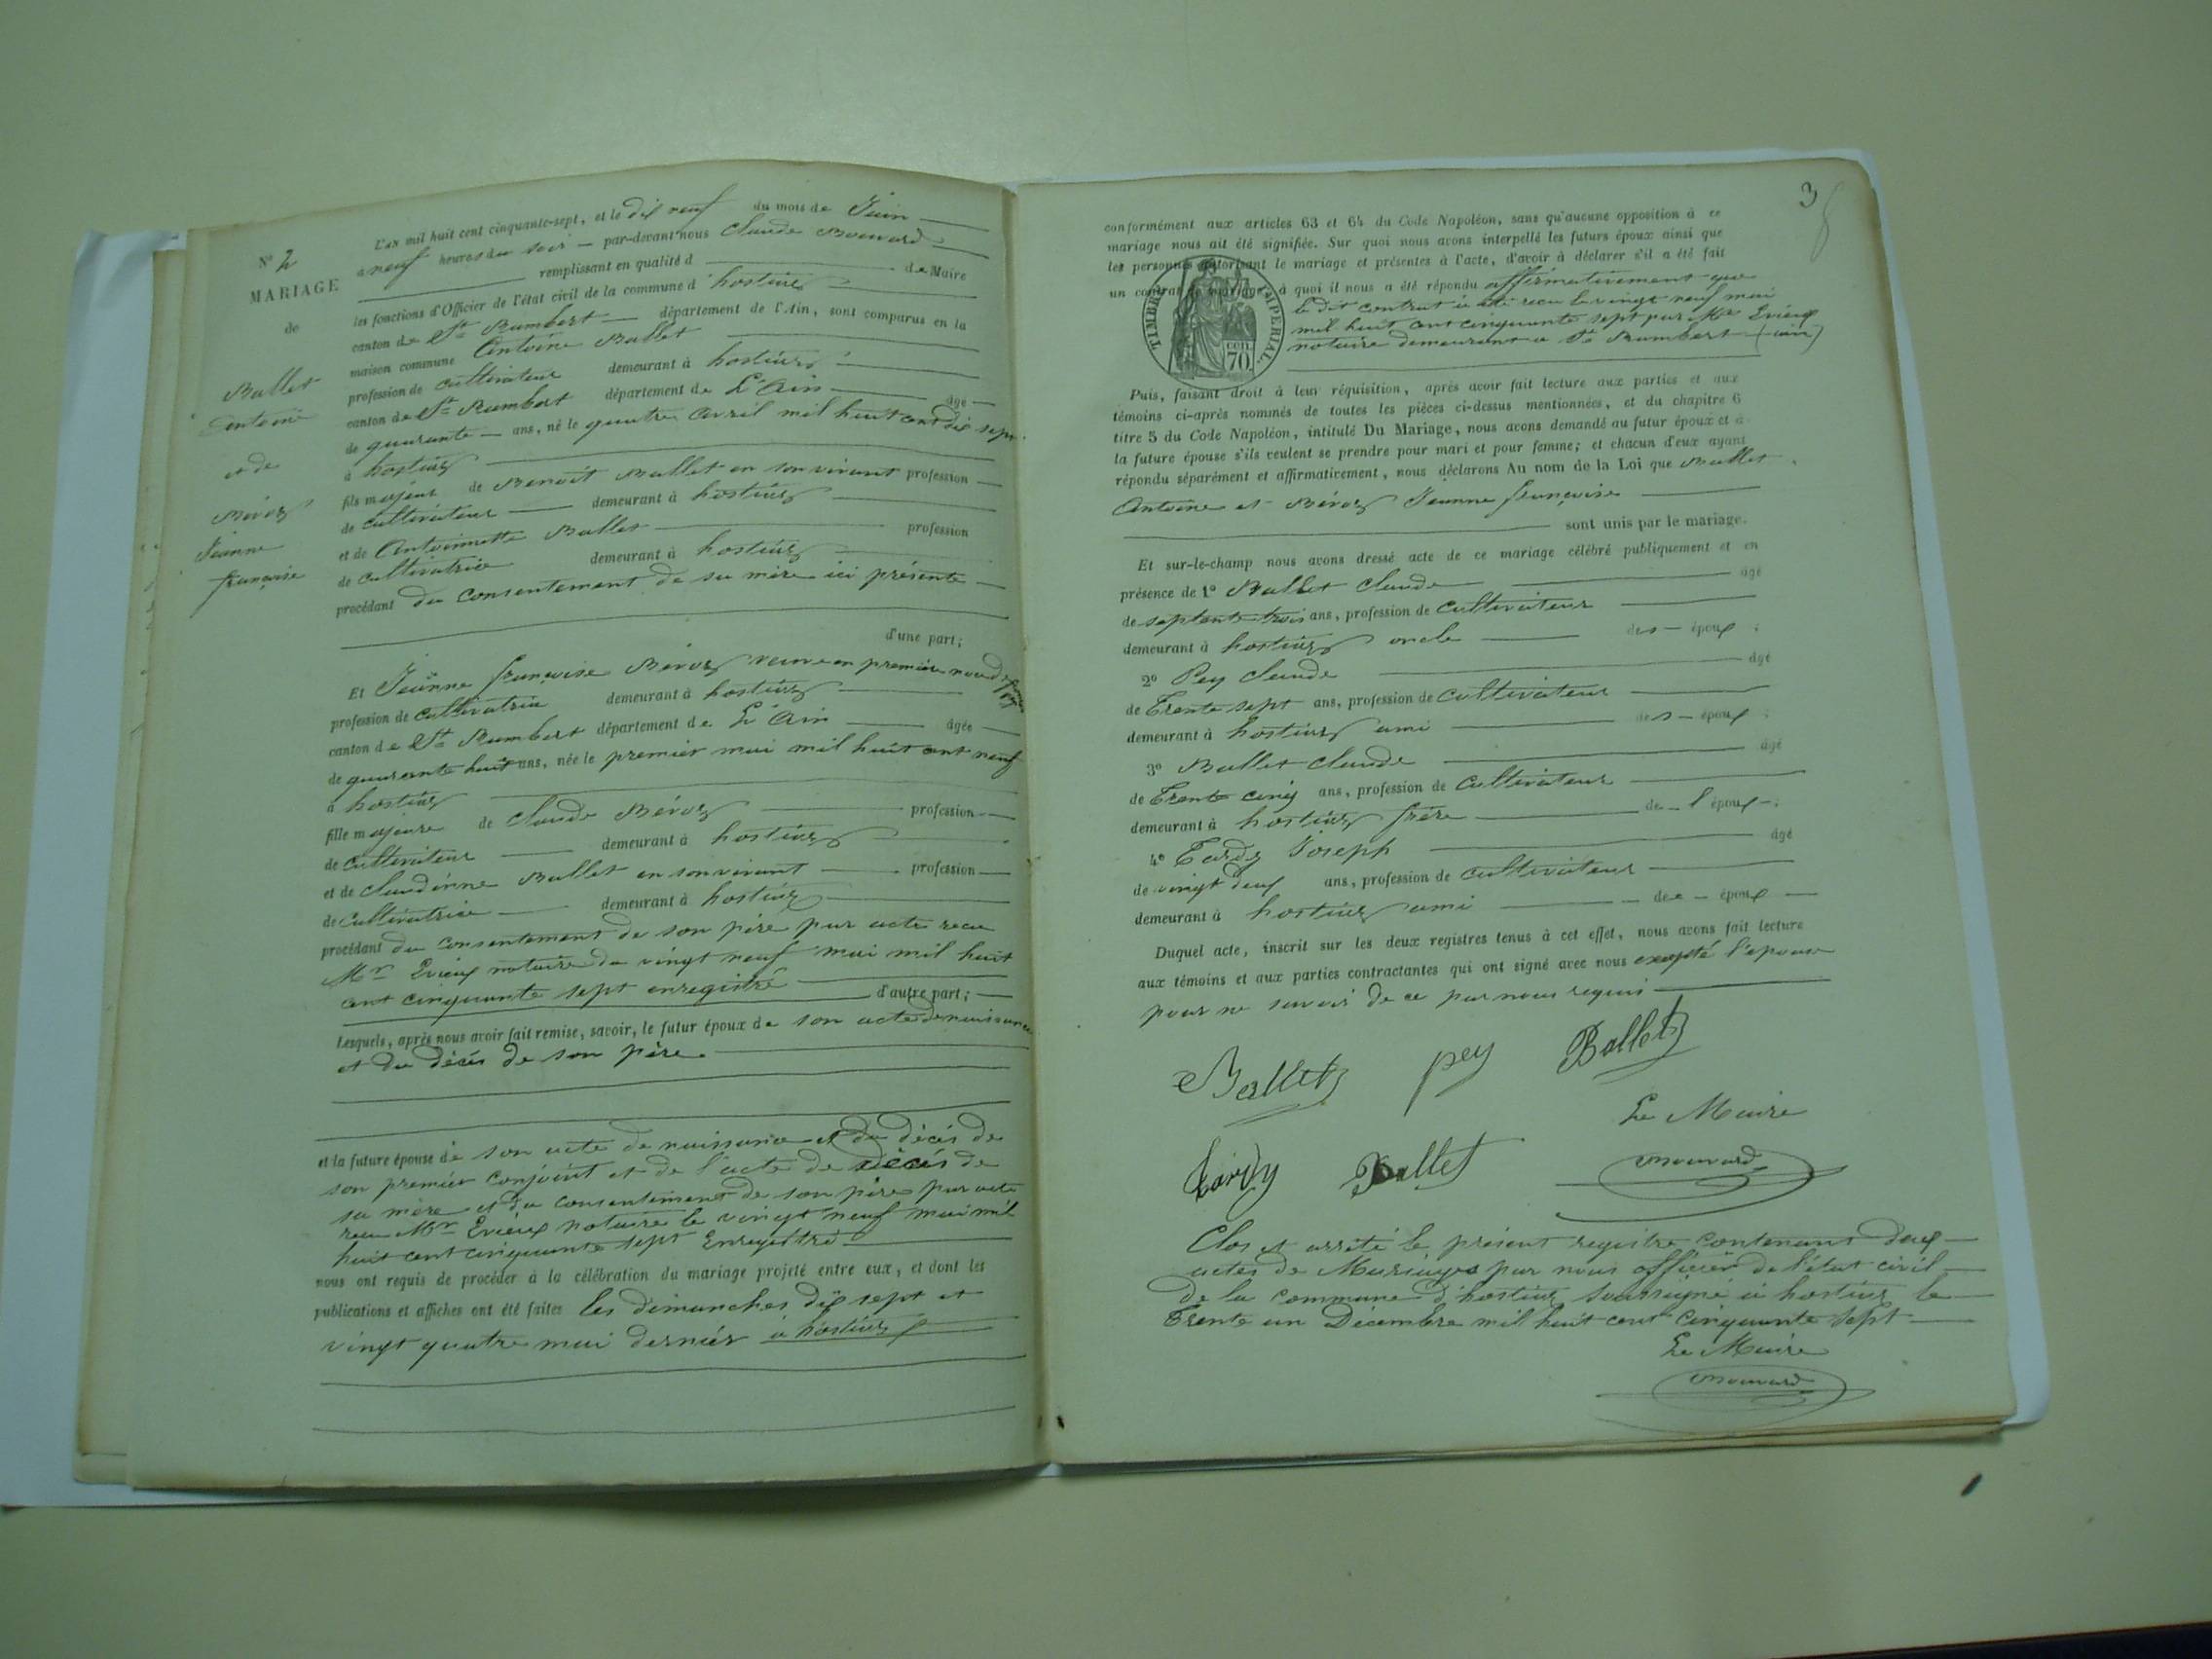 N° 2
MARIAGE
de
Ballet
Antoine
et de
Béroz
Jeanne
françoise
L'an mil huit cent cinquante-sept, et le dix neuf du mois de Juin
à neuf heures du soir par-devant nous Claude
remplissant en qualité d de Maire
les fonctions d'Officier de l'état civil de la commune d'hostiaz
canton de St Rambert département de l'Ain, sont comparus en la
maison commune Antoine Ballet
profession de cultivateur demeurant à hostiaz
canton de St Rambert département de L'Ain âgé
de quarante ans, né le quatre avril mil huit cent dix sept
à hostiaz
fils majeur de Benoit Ballet en son vivant profession
de cultivateur demeurant à hostiaz
et de Antoinette Ballet profession
de cultivatrice demeurant à hostiaz
procédant du consentement de sa mère ici présente
d'une part;
Et Jeanne françoise Béroz veuve en première
profession de cultivatrice demeurant à hostiaz
canton de St Rambert département de L'Ain âgée
de quarante huit ans, née le premier mai mil huit cent neuf
à hostiaz
fille majeure de Claude Béroz profession
de cultivateur demeurant à hostiaz
et de Claudinne Ballet en son vivant profession
de cultivatrice demeurant à hostiaz
procédant du consentement de son père par acte recu
Mr Evieux notaire du vingt neuf mai mil huit
cent cinquante sept enregistré d'autre part;
Lesquels, après nous avoir fait remise, savoir, le futur époux de son acte de naissance
et du décès de son père
et la future épouse de son acte de naissance et du décès de
son premier conjoint et de l'acte de décès de
sa mère et du consentement de son père par acte
recu Mr Evieux notaire le vingt neuf mai mil
huit cent cinquante sept Enregistré
nous ont requis de procéder à la célébration du mariage projeté entre eux, et dont les
publications et affiches ont été faites les dimanches dix sept et
vingt quatre mai dernier à hostiaz
3
conformément aux articles 63 et 64 du Code Napoléon, sans qu'aucune opposition à ce
mariage nous ait été signifiée. Sur quoi nous avons interpellé les futurs époux ainsi que
les personnes autorisant le mariage et présentes à l'acte, d'avoir à déclarer s'il a été fait
un contrat de mariage, à quoi il nous a été répondu affirmativement que
le dit contrat à été recu le vingt neuf mai
mil huit cent cinquante sept par Me Evieux
notaire demeurant a St Rambert (ain)
TIMBRE IMPERIAL
70 cen.
Puis, faisant droit à leur réquisition, après avoir fait lecture aux parties et aux
témoins ci-après nommés de toutes les pièces ci-dessus mentionnées, et du chapitre 6
titre 5 du Code Napoléon, intitulé Du Mariage, nous avons demandé au futur époux et à
la future épouse s'ils veulent se prendre pour mari et pour femme; et chacun d'eux ayant
répondu séparément et affirmativement, nous déclarons Au nom de la Loi que Ballet
Antoine et Béroz Jeanne françoise
sont unis par le mariage.
Et sur-le-champ nous avons dressé acte de ce mariage célébré publiquement et en
présence de 1° Ballet Claude âgé
de septante trois ans, profession de cultivateur
demeurant à hostiaz oncle des époux;
2° Pey Claude âgé
de Trente sept ans, profession de cultivateur
demeurant à hostiaz ami des époux;
3° Ballet Claude âgé
de Trente cinq ans, profession de Cultivateur
demeurant à hostiaz frère de l'époux;
4° Tardy Joseph âgé
de vingt deux ans, profession de cultivateur
demeurant à hostiaz ami des époux
Duquel acte, inscrit sur les deux registres tenus à cet effet, nous avons fait lecture
aux témoins et aux parties contractantes qui ont signé avec nous excepté l'épouse
pour ne savoir de ce par nous requis
Ballet pey Ballet
Le Maire
tardy Ballet
Clos et arrêté le présent registre contenant deux
actes de Mariages par nous officier de l'état civil
de la commune d'hostiaz soussigné à hostiaz le
Trente un Décembre mil huit cent cinquante sept
Le Maire